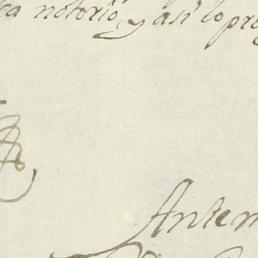 notorio, y asi lo pro
Antem